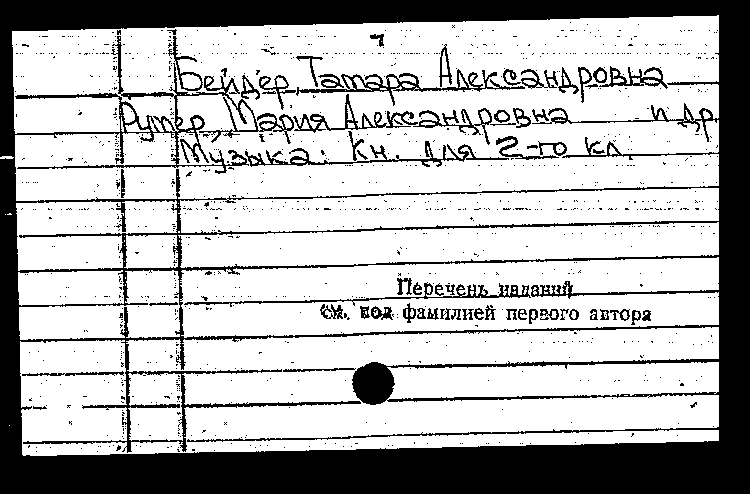 7
Бейдер, Тамара Александровна
Рутер, Мария Александровна и др.
Музыка: Кн. для 2-го кл.
Перечень изданий
см. под фамилией первого автора